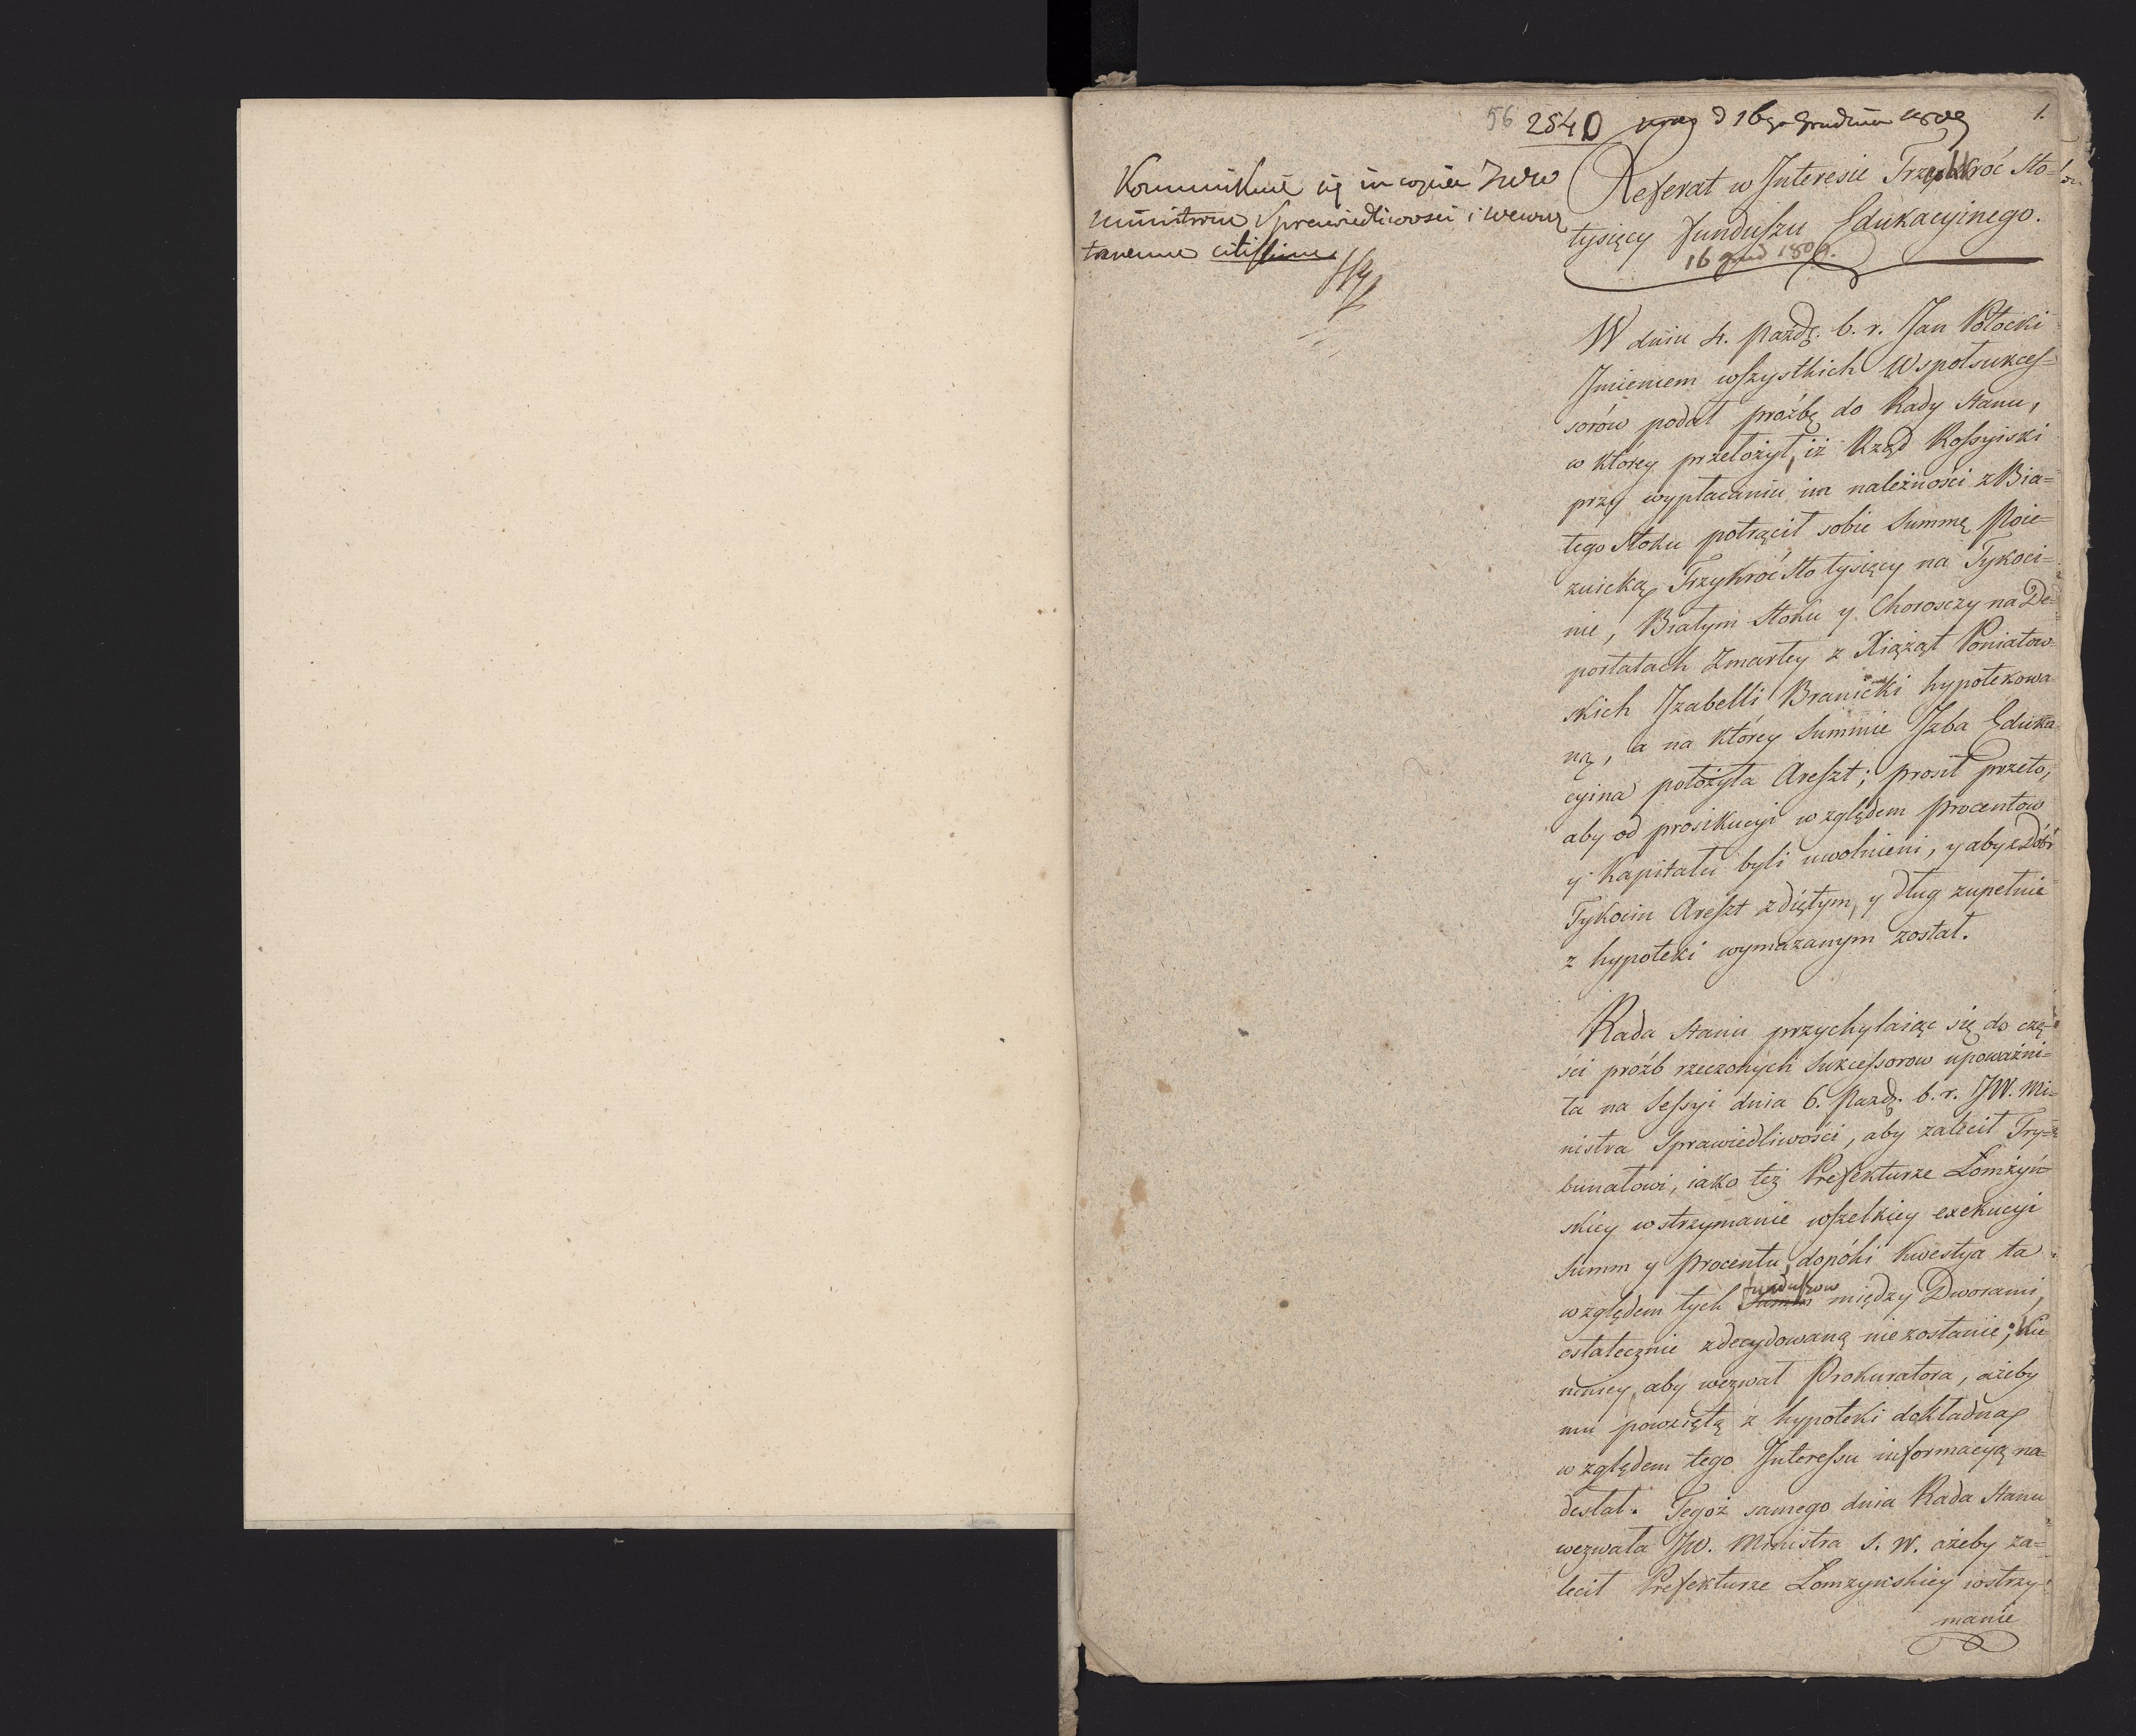 56 2540 d 16go Grudnia 1809
1.
Kommunikuie się in copia JWW
Ministrom Sprawiedliwosci i Wewnę
trznemu citissime
Referat w Interesie Trzykroć Sto-
tysięcy Funduszu Edukacyinego.
16 grud 1809.
W dniu 4. Paźdź. b. r. Jan Potocki
Imieniem wszystkich Wspołsukces=
sorów podał proźbę do Rady Stanu,
w którey przełożył, iż Rząd Rossyiski
przy wypłacaniu im należności z Bia=
łego Stoku potrącił sobie Summę Poie=
zuicką Trzykroć Sto tysięcy na Tykoci=
nie, Białym Stoku y Choroszczy na De=
portatach Zmarłey z Xiążąt Poniatow
skich Izabelli Branicki hypotekowa
ną, a na którey Summie Izba Eduka
cyina położyła Areszt; prosił przeto,
aby od prosekucyi względem Procentow
y Kapitału byli uwolnieni, y aby z Dóbr
Tykocin Areszt zdiętym, y dług zupełnie
z hypoteki wymazanym został.
Rada Stanu przychylaiąc się do czę=
ści próźb rzeczonych Sukcessorow upoważni=
ła na Sessyi dnia 6. Paźdź. b. r. JW. Mi=
nistra Sprawiedliwości, aby zalecił Try=
bunałowi, iako też Prefekturze Łomżyń=
skiey wstrzymanie wszelkiey exekucyi
Summ y Procentu, dopóki kwestya ta
funduszow
względem tych Summ między Dworami
ostatecznie zdecydowaną nie zostanie; Nie
mniey, aby wezwał Prokuratora, ażeby
mu powziętą z hypoteki dokładną
względem tego Interessu informacyą na=
desłał. Tegoż samego dnia Rada Stanu
wezwała JW. Ministra S. W. ażeby za=
lecił Prefekturze Łomzynskiey wstrzy=
manie